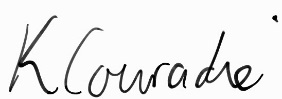 K Conradie